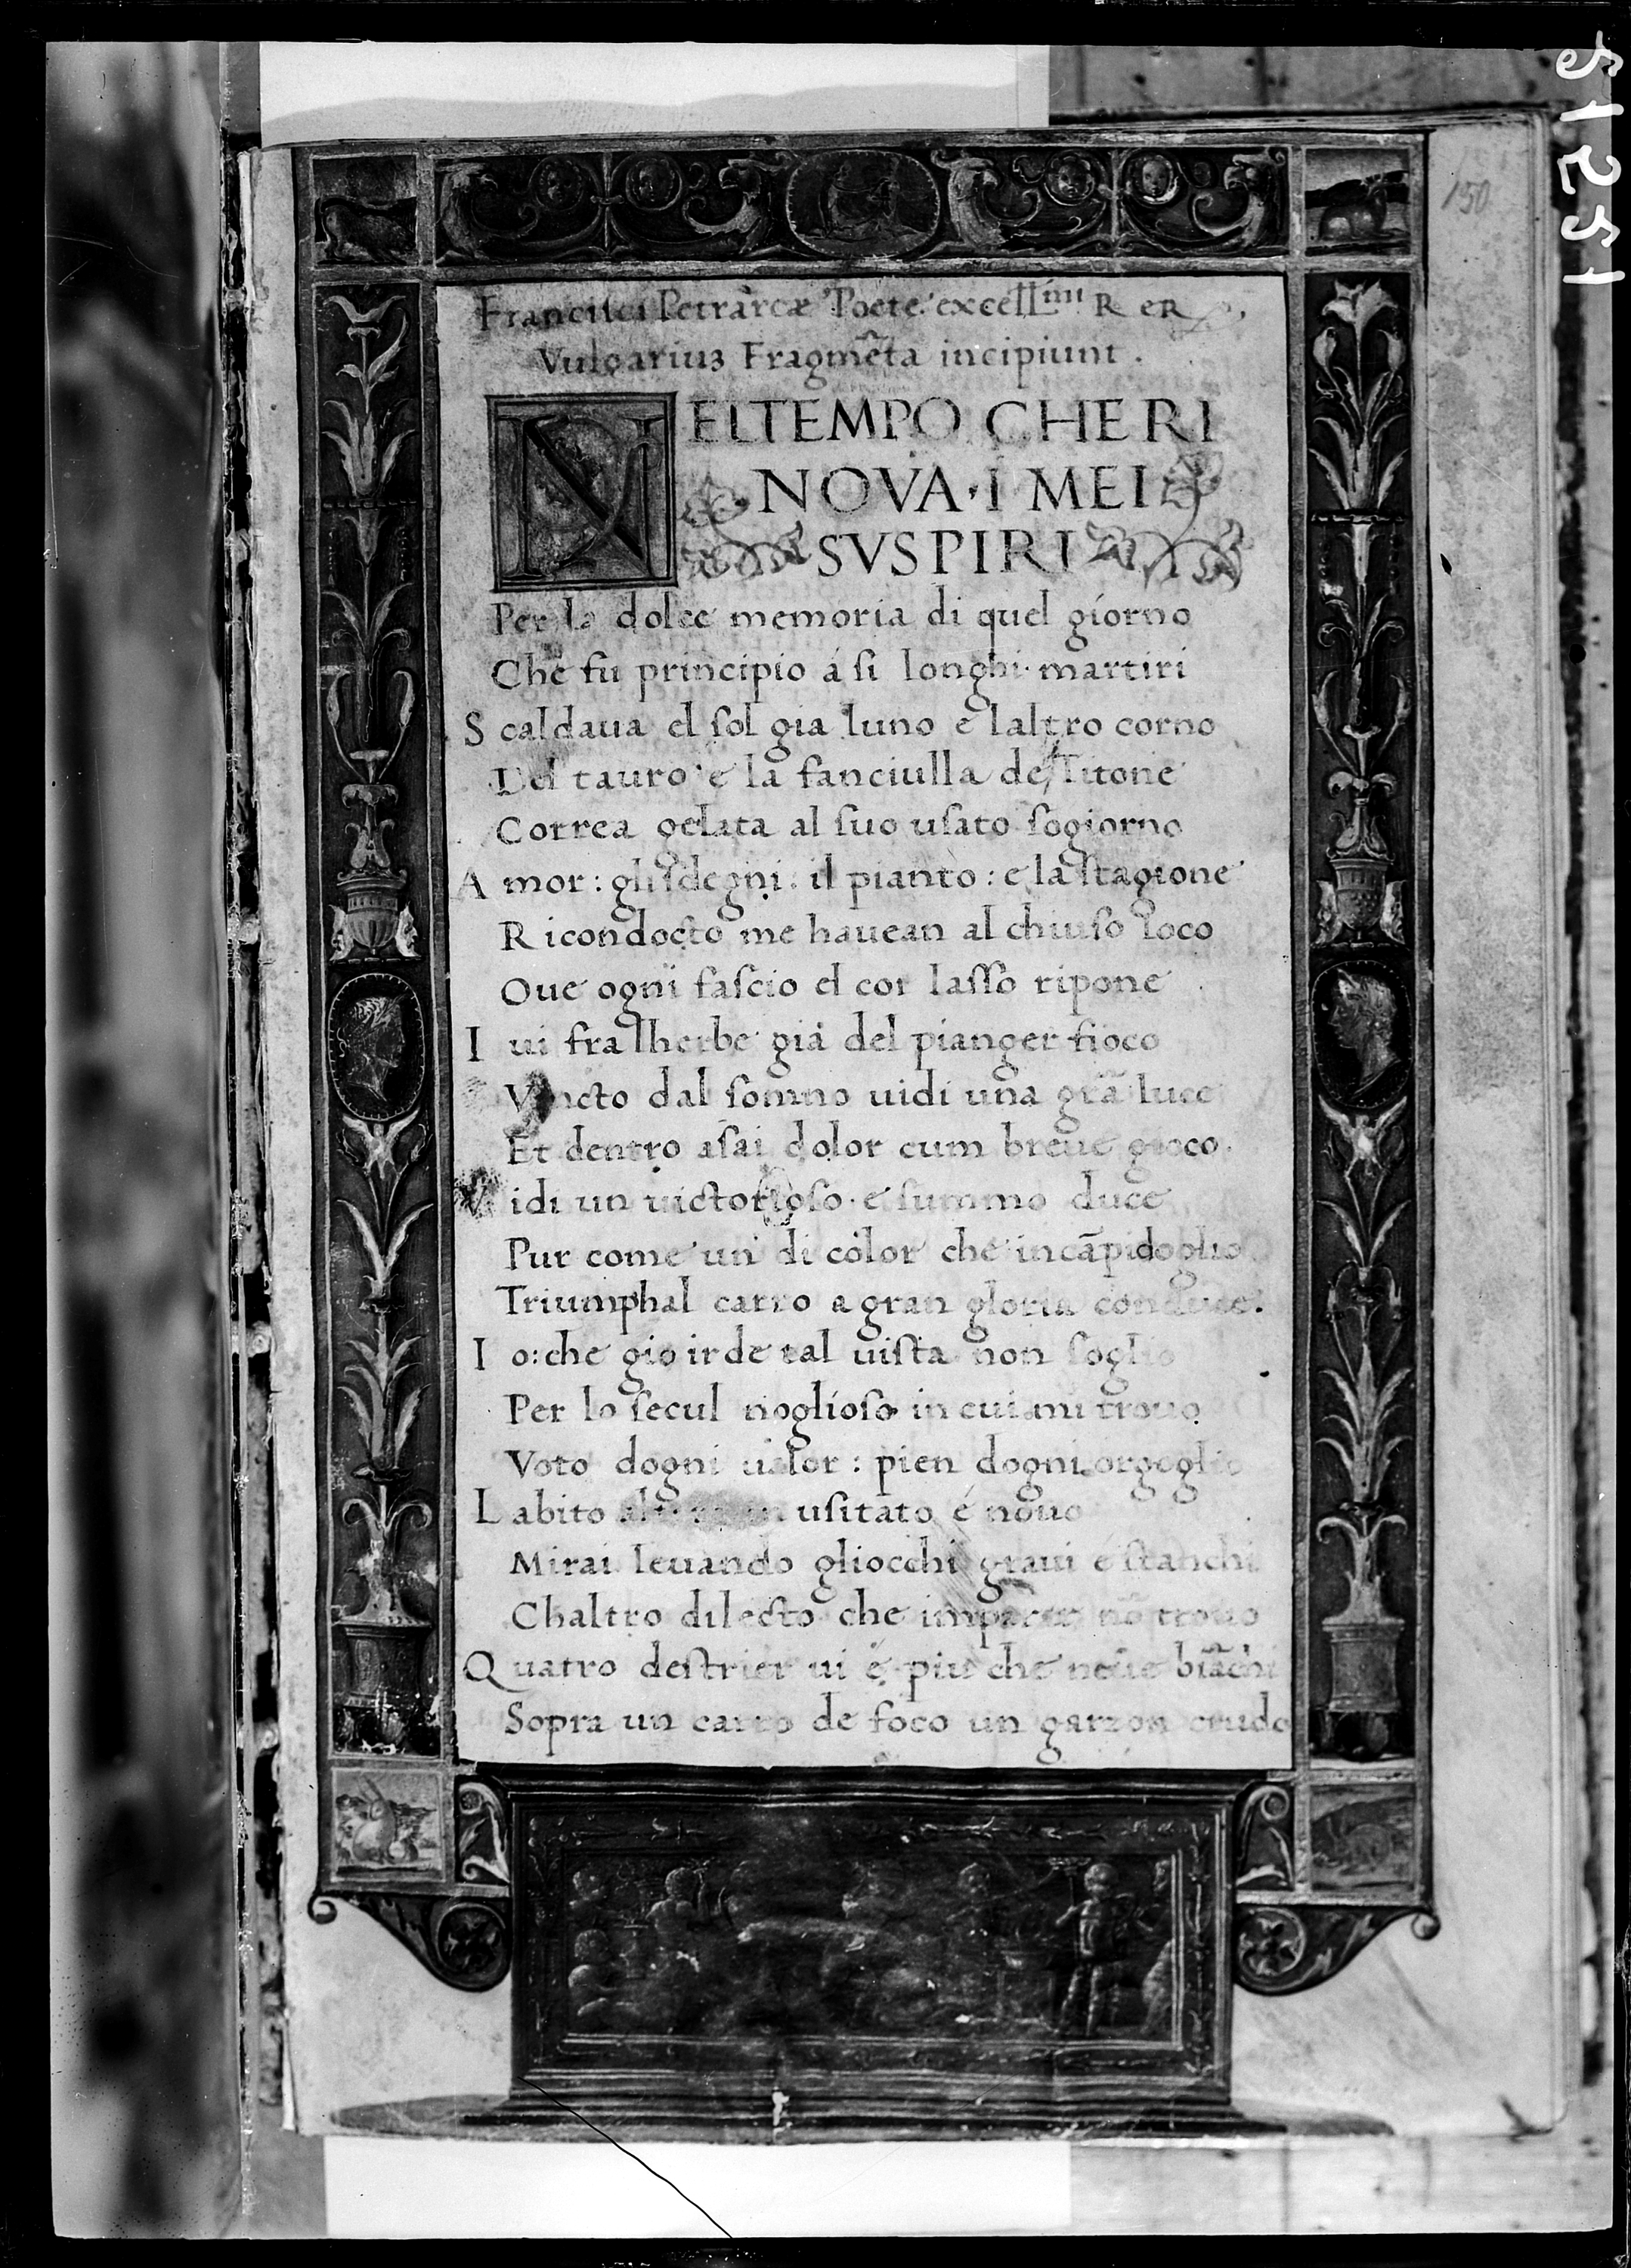 150
Francisci Petrarcæ Poete excellmi R eR
Vulgariuʒ Fragmẽta incipiunt .
N ELTEMPO CHE RI
NOVA · I MEI
SVSPIRI
Per la dolce memoria di quel giorno
Che fu principio á ſi longhi martiri
S caldaua el ſol gia luno e laltro corno
Del tauro e la fanciulla de Titone
Correa gelata al ſuo uſato ſogiorno
A mor : gliſdegni : il pianto : e la ſtagione
R icondocto me hauean al chiuſo loco
Oue ogni faſcio el cor laſſo ripone
I ui fra lherbe giá del pianger fioco
Vincto dal ſomno uidi una grã luce
Et dentro aſai dolor cum breue gioco .
V idi un uictorioſo · e ſummo duce
Pur come un di color che in cãpidoglio
Triumphal carro a gran gloria conduce .
I o : che gioir de tal uiſta non ſoglio
Per lo ſecul noglioſo in cui mi trouo
Voto dogni ualor : pien dogni orgoglio
L abito uſitato é nouo
Mirai leuando gliocchi graui é ſtanchi
Chaltro dilecto che imparar nõ trouo
Q uatro deſtrier ui é piu che neue biãchi
Sopra un carro de foco un garzon crudo